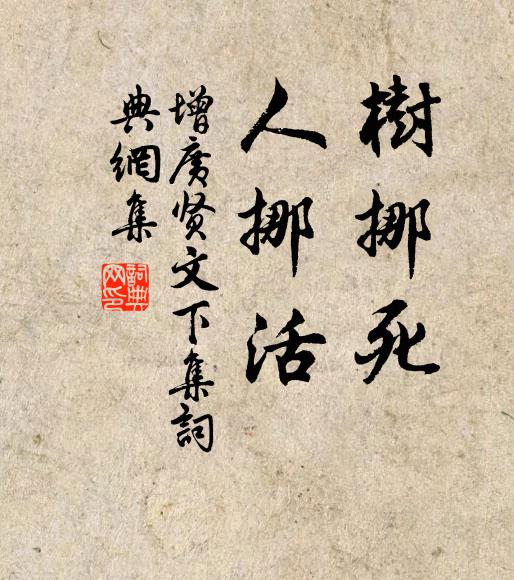 樹挪死
人挪活
增广贤文下集詞
典網集
詞典
网印